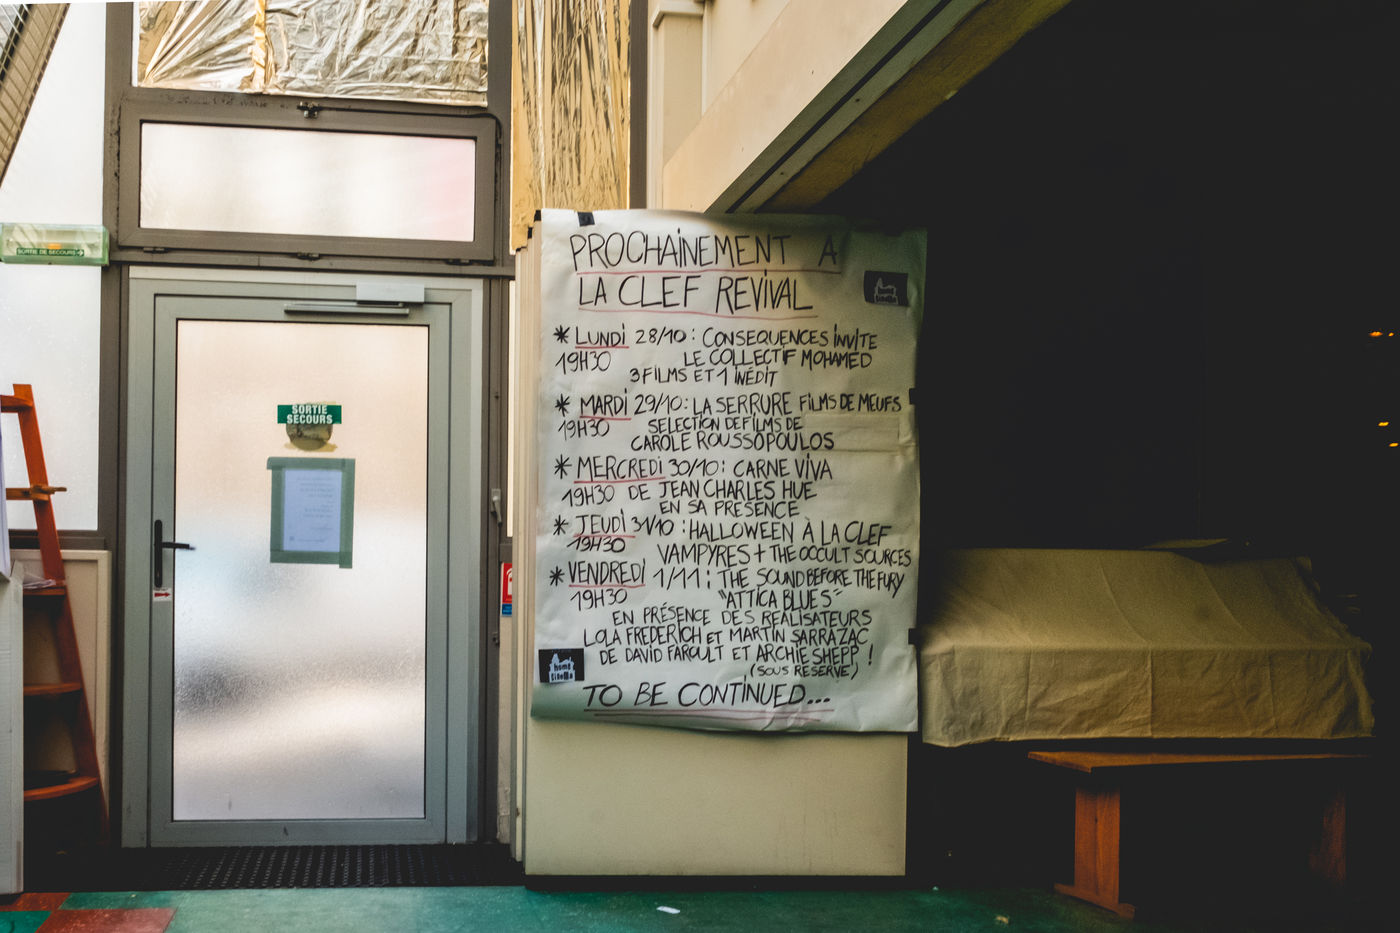 SORTIE DE SECOURS
SORTIE
SECOURS
PROCHAiNEMENT A
LA CLEF REViVAL
home
cinema
* LUNDi 28/10 : CONSEQUENCES iNViTE
19H30 LE COLLECTiF MOHAMED
3 FiLMS ET 1 iNÉDiT
* MARDi 29/10 : LA SERRURE FiLMS DE MEUFS
19H30 SELECTiON DE FiLMS DE
CAROLE ROUSSOPOULOS
* MERCREDi 30/10 : CARNE ViVA
19H30 DE JEAN CHARLES HUE
EN SA PRESENCE
* JEUDi 31/10 : HALLOWEEN À LA CLEF
19H30 VAMPYRES + THE OCCULT SOURCES
* VENDREDi 1/11 : THE SOUND BEFORE THE FURY
19H30 "ATTiCA BLUES"
EN PRÉSENCE DES REALiSATEURS
LOLA FREDERiCH ET MARTiN SARRAZAC
DE DAViD FAROULT ET ARCHiE SHEPP !
(SOUS RESERVE)
home
cinema
TO BE CONTiNUED...